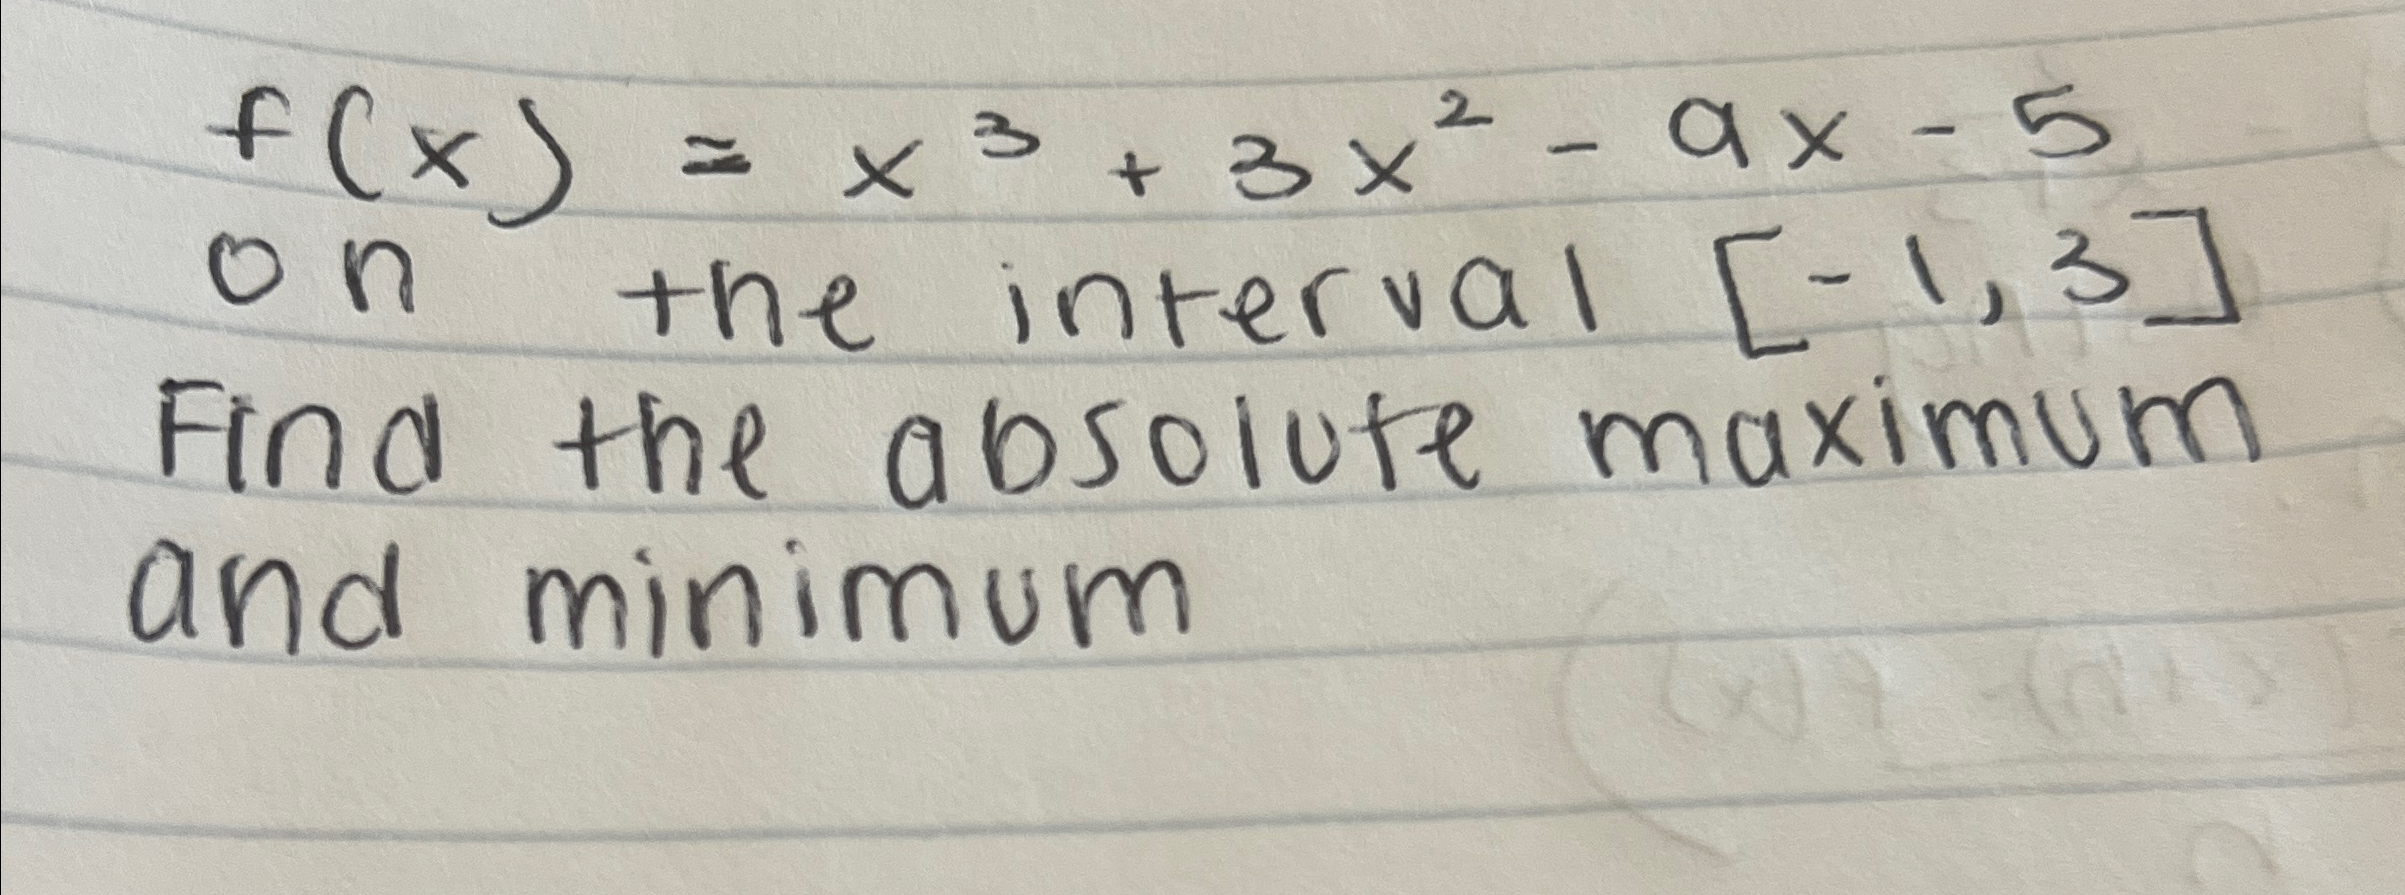 f(x) = x³ + 3x² - 9x - 5
on the interval [-1, 3]
Find the absolute maximum
and minimum